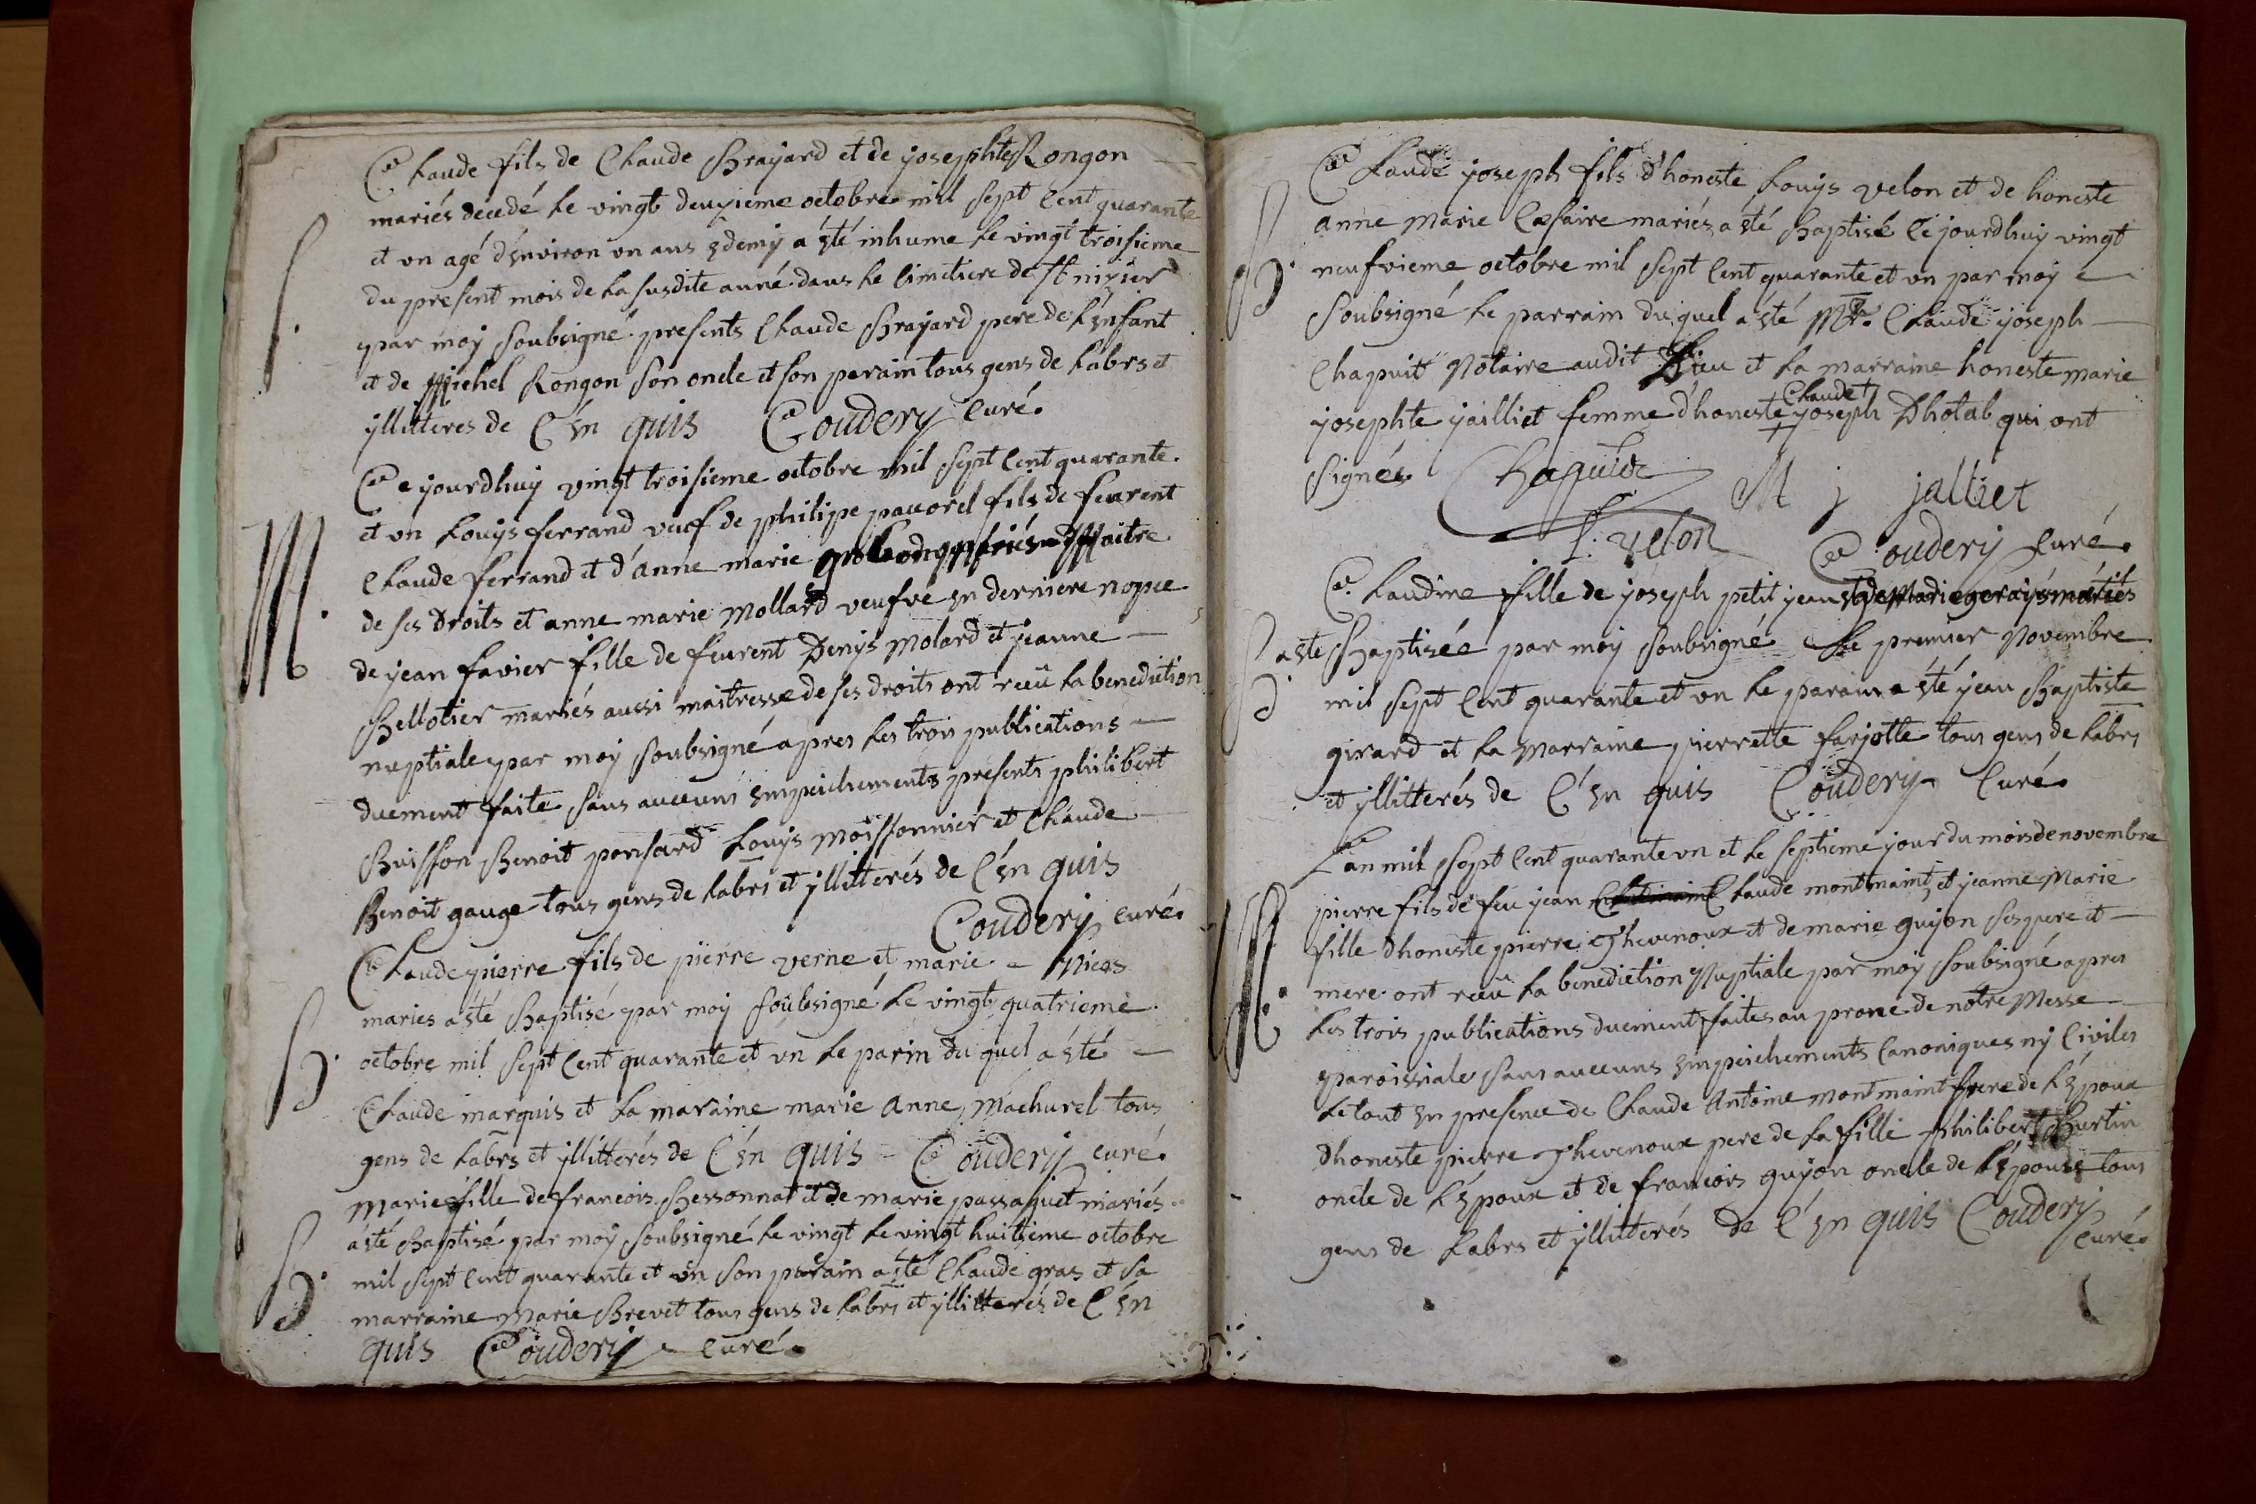 Claude fils de Claude Brayard et de josephte Rongon
mariés decedé le vingt deuxieme octobre mil sept cent quarante
et un agé d'environ un ans & demy a été inhume le vingt troisieme
du present mois de la susdite anné dans le cimetiere de St nizier
S.
par moy soubsigné presents Claude Brayard pere de l'enfant
et de Michel Rongon son oncle et son perain tous gens de labrs et
yllitteres de ce enquis Coudery curé.
Ce jourdhuy vingt troisieme octobre mil sept cent quarante
et un Louys ferrand veuf de philipe pauorel fils de feurent
M.
Claude ferrand et d'anne marie mariés Maitre
de ses Droits et anne marie Mollard veufve en derniere nopce
de jean favier fille de feurent Denys Molard et jeanne
Bellotier mariés aussi maitresse de ses droits ont reçu la benediction
nuptiale par moy soubsigné apres les trois publications
duement faite sans aucuns empeichements presents philibert
Buisson Benoit ponsard Louys moissonnier et Claude
Benoit gauge tous gens de labrs et yllitterés de ce enquis
Coudery curé.
Claude pierre fils de pierre verne et marie
B.
mariés a été Baptisé par moy soubsigné le vingt quatrieme
octobre mil sept cent quarante et un le parin du quel a été
Claude marquis et la maraine marie anne Machurel tous
gens de labrs et yllitterés de ce enquis Coudery curé.
Marie fille de francois Bessonnat et de marie passaquet mariés
B.
a été Baptisé par moy soubsigné le vingt le vingt huitieme octobre
mil sept cent quarante et un son parain a été Claude gras et sa
marraine Marie Brevet tous gens de labrs et yllitterés de ce en
quis Coudery curé.
Claude joseph fils d'honeste Louys velon et de honeste
B.
anne Marie Casaire mariés a été Baptisé ce jourdhuy vingt
neufvieme octobre mil sept cent quarante et un par moy
soubsigné le parrain du quel a été Mre. Claude joseph
Chapuit Notaire audit Lieu et la marraine honeste marie
Claude
josephte jailliet femme d'honeste joseph Dhotal qui ont
signés. Chapuit M j jalliet
L. velon Coudery curé.
Claudine fille de joseph petit jean et de Marie geray mariés
B.
a été Baptisée par moy soubsigné le premier Novembre
mil sept cent quarante et un le parain a été jean Baptiste
girard et la Marraine pierrette farjotte tous gens de labrs
et yllitterés de ce enquis Coudery Curé.
Lan mil sept cent quarante un et le septieme jour du mois de novembre
M.
pierre fils de feu jean Claude montmaint et jeanne Marie
fille Dhoneste pierre Thevenoux et de marie guyon ses pere et
mere ont reçu la benediction Nuptiale par moy soubsigné apres
les trois publications duement faites au prone de notre Messe
paroissiale sans aucuns empeichements canoniques ny Civiles
le tout en presence de Claude Antoine montmaint frere de l'epoux
dhoneste pierre Thevenoux pere de la fille philibert Burtin
oncle de l'epoux et de francois guyon oncle de l'epouse tous
gens de labrs et yllitterés de ce enquis Coudery
curé.